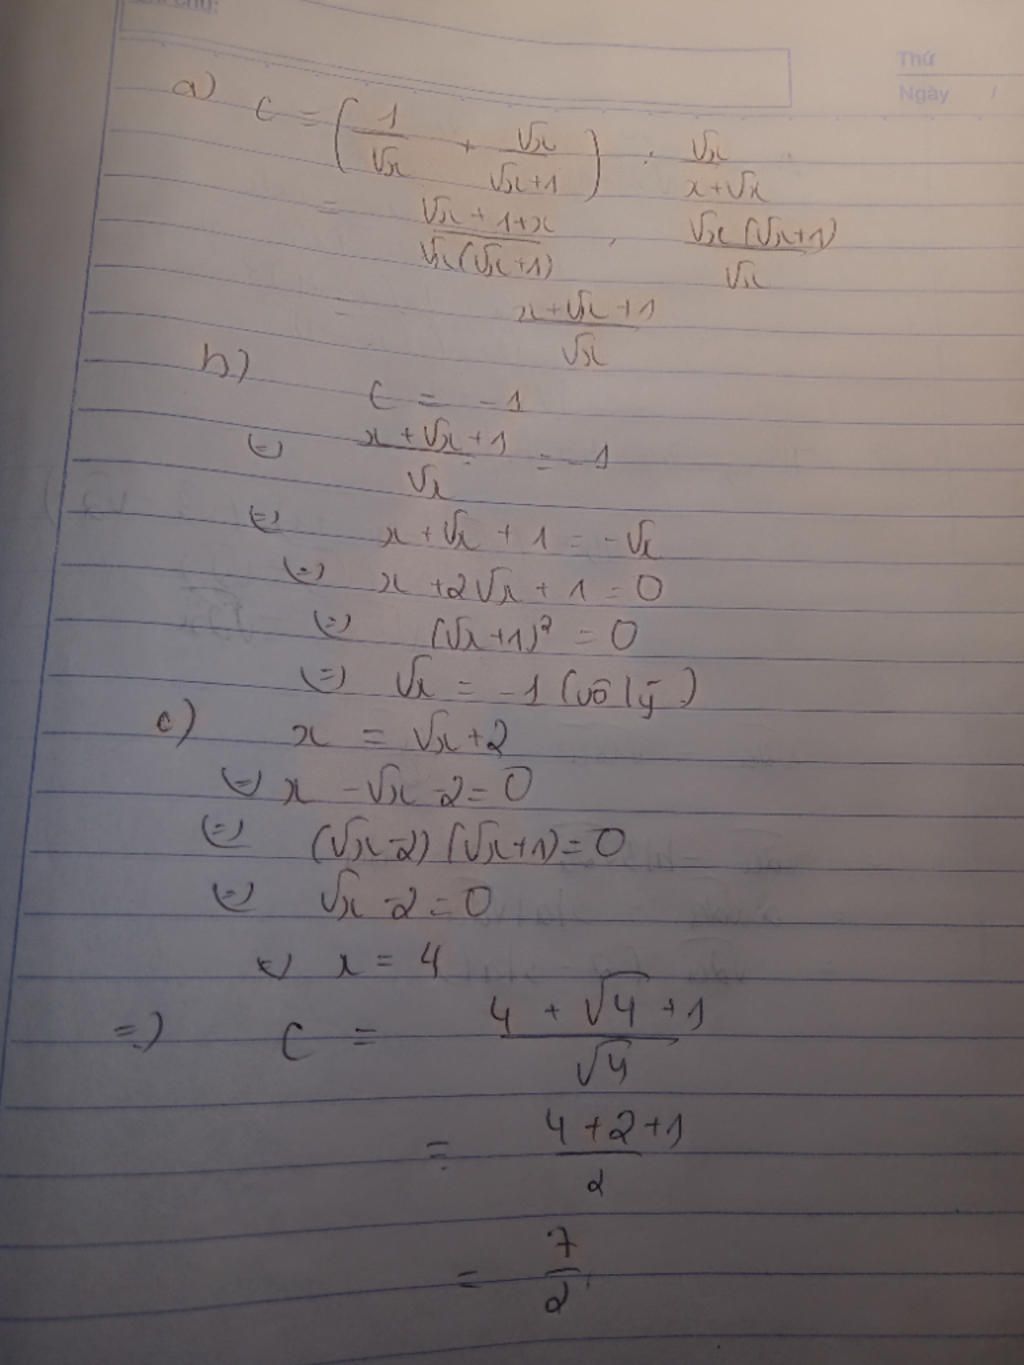 Thứ
Ngày /
a) C = (1/√x + √x/(√x+1)) : √x/(x+√x)
= (√x+1+x)/(√x(√x+1)) . √x(√x+1)/√x
= (x+√x+1)/√x
b)
C = -1
(=) (x+√x+1)/√x = -1
(=) x+√x+1 = -√x
(=) x+2√x+1=0
(=) (√x+1)² = 0
(=) √x = -1 (vô lý)
c) x = √x+2
(=) x-√x-2=0
(=) (√x-2)(√x+1)=0
(=) √x-2=0
(=) x = 4
=) C = (4+√4+1)/√4
= (4+2+1)/2
= 7/2